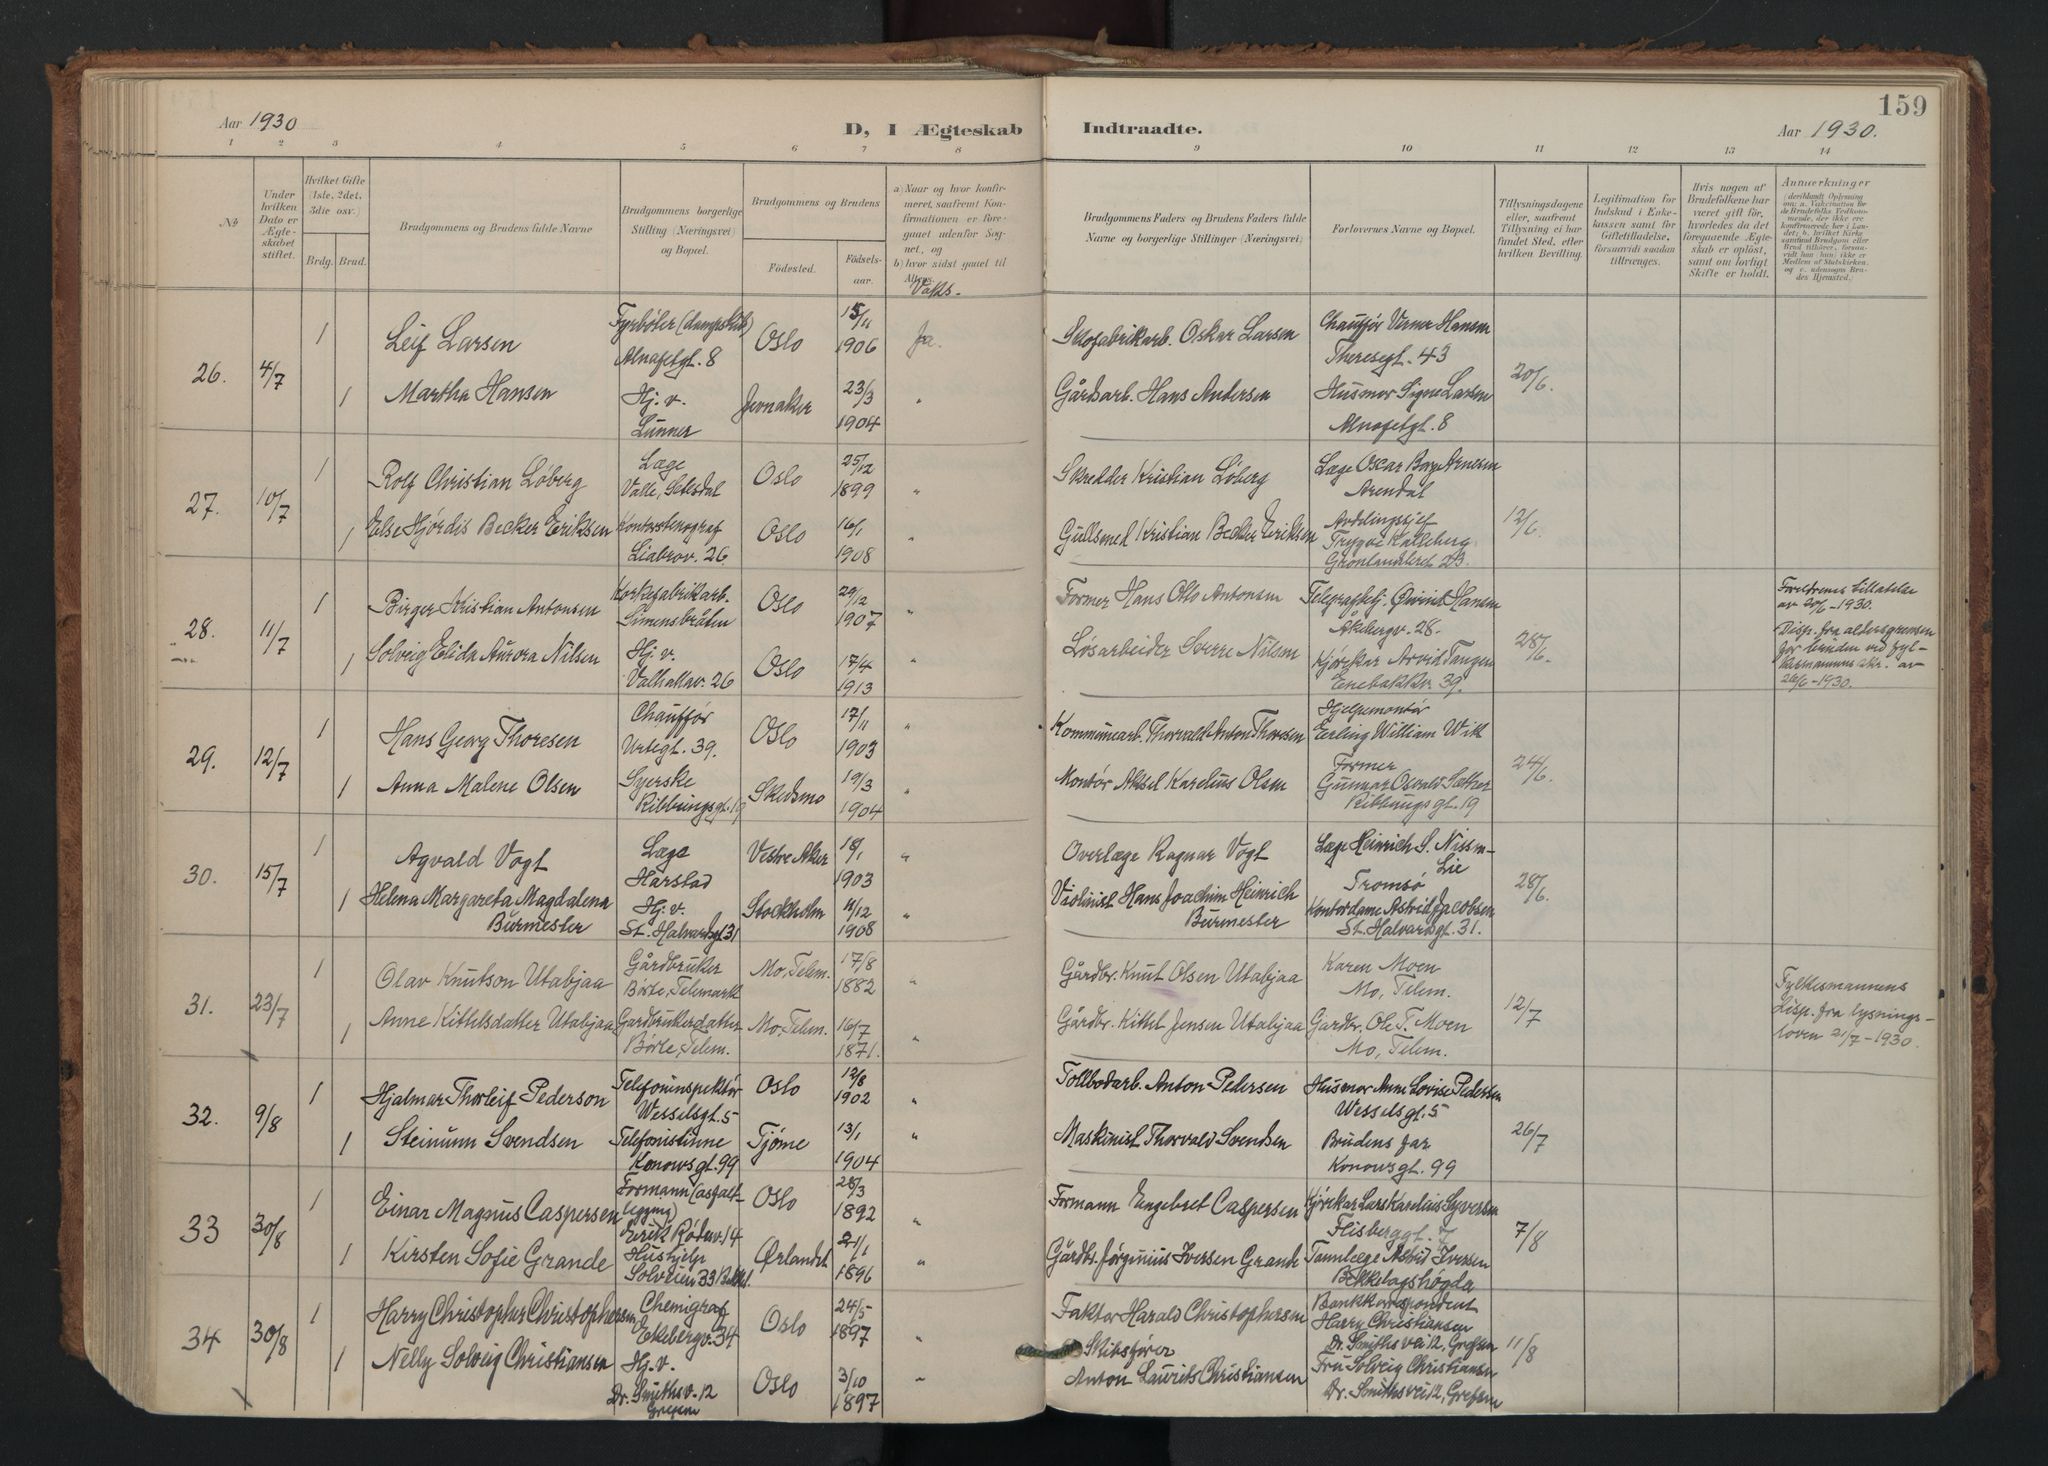 159
Aar 1930
D, I Ægteskab
Indtraadte.
Aar 1930.
1 2 3 4 5 6 7 8
9 10 11 12 13 14
No
Under hvilken Dato er Ægteskabet stiftet.
Hvilket Gifte (1ste, 2det, 3die osv.)
Brdg. Brud.
Brudgommens og Brudens fulde Navne
Brudgommens borgerlige Stilling (Næringsvei) og Bopæl.
Brudgommens og Brudens
Fødested.
Fødselsaar.
a) Naar og hvor konfirmeret, saafremt Konfirmationen er foregaaet udenfor Sognet, og
b) hvor sidst gaaet til Alters.
Vaks.
Brudgommens Faders og Brudens Faders fulde Navne og borgerlige Stillinger (Næringsvei)
Forlovernes Navne og Bopæl.
Tillysningsdagene eller, saafremt Tillysning ei har fundet Sted, efter hvilken Bevilling.
Legitimation for Indskud i Enkekassen samt for Giftetilladelse, forsaavidt saadan tiltrænges.
Hvis nogen af Brudefolkene har været gift før, hvorledes da det foregaaende Ægteskab er opløst, samt om lovligt Skifte er holdt.
Anmærkninger
26. 4/7
1 Leif Larsen
Fyrbøter (dampskib)
Alnafetgt. 8
Oslo 15/11 1906 Ja.
Skofabrikarb. Oskar Larsen
Chauffør Verner Hansen
Theresegt. 43
20/6.
1 Martha Hansen
Hj. v.
Lunner
Jevnaker 23/3 1904 "
Gårdsarb. Hans Andersen
Husmor Signe Larsen
Alnafetgt. 8
27. 10/7
1 Rolf Christian Løberg
Læge
Valle, Setesdal
Oslo 25/12 1899 "
Skredder Kristian Løberg
Læge Oscar Borge Arnesen
Arendal
12/6.
1 Else Hjørdis Becker Eriksen
Kontorstenograf
Liabrov. 26
Oslo 16/1 1908 "
Gullsmed Kristian Becker Eriksen
Avdelingssjef
Trygve Kalleberg
Grønlandsleret 23.
28. 11/7
1 Birger Kristian Antonsen
Korkefabrikarb.
Simensbråten
Oslo 29/12 1907 "
Former Hans Otto Antonsen
Telegrafbetj. Øivind Hansen
Åkebergv. 28.
28/6.
Foreldrenes tillatelse
av 20/6-1930.
Disp. fra aldersgrensen
for bruden ved fyl-
kesmannens skr. av
26/6-1930.
1 Solveig Elida Aurora Nilsen
Hj. v.
Valhallav. 26
Oslo 17/4 1913 "
Løsarbeider Sverre Nilsen
Kjørekar Arvid Tangen
Enebakkv. 39.
29. 12/7
1 Hans Georg Thoresen
Chauffør
Urtegt. 39.
Oslo 17/11 1903 "
Kommunearb. Thorvald Anton Thoresen
Hjelpemontør
Erling William Wik
24/6.
1 Anna Malene Olsen
Syerske
Ribbungsgt. 19
Skedsmo 19/3 1904 "
Montør Aksel Karelius Olsen
Former
Gunnar Osvald Sæther
Ribbungsgt. 19
30. 15/7
1 Agvald Vogt
Læge
Harstad
Vestre Aker 18/1 1903 "
Overlæge Ragnar Vogt
Læge Heinrich S. Nissen-
Lie
Tromsø
28/6.
1 Helena Margareta Magdalena
Burmester
Hj. v.
St. Halvardsgt 31
Stockholm 11/12 1908 "
Violinist Hans Joachim Heinrich
Burmester
Kontordame Astrid Jacobsen
St. Halvardsgt. 31.
31. 23/7
1 Olav Knutson Utabjaa
Gårdbruker
Børte, Telemark
Mo, Telem. 17/8 1882 "
Gårdbr. Knut Olsen Utabjaa
Karen Moen
Mo, Telem.
12/7
Fylkesmannens
disp. fra lysnings-
loven 21/7-1930.
1 Anne Kittilsdatter Utabjaa
Gardbrukerdatter
Børte, Telem.
Mo, Telem. 16/7 1871. "
Gårdbr. Kittil Jensen Utabjaa
Gardbr. Ole T. Moen
Mo, Telem.
32. 9/8
1 Hjalmar Thorleif Pederson
Telefoninspektør
Wesselsgt. 5
Oslo 12/8 1902 "
Tollbodarb. Anton Pedersen
Husmor Anne Lovise Pedersen
Wesselsgt. 5
26/7
1 Steinunn Svendsen
Telefonistinne
Konowsgt. 99
Tjøme 13/1 1904 "
Maskinist Thorvald Svendsen
Brudens far
Konowsgt. 99
33 30/8
1 Einar Magnus Caspersen
Formann (asfalt-
legging)
Eirik Rødesv. 14
Oslo 28/3 1892 "
Formann Engebret Caspersen
Kjørekar Lars Karelius Syversen
Flisberggt. 7
7/8
1 Kirsten Sofie Grande
Hushjelp
Solveien 33 Bekkel.
Ørlandet 21/1 1896 "
Gårdbr. Jørginius Iversen Grande
Tannlæge Astrid Iversen
Bekkelagshøgda
34 30/8
1 Harry Christopher Christophersen
Chemigraf
Ekebergv. 34
Oslo 24/5 1897 "
Faktor Harald Christophersen
Bankkorrespondent
Harry Christiansen
Dr. Smiths vei 12, Grefsen
11/8
1 Nelly Solveig Christiansen
Hj. v.
Dr. Smithsv. 12
Grefsen
Oslo 3/10 1897 "
Skibsfører
Anton Laurits Christiansen
Fru Solveig Christiansen
Dr. Smiths vei 12, Grefsen